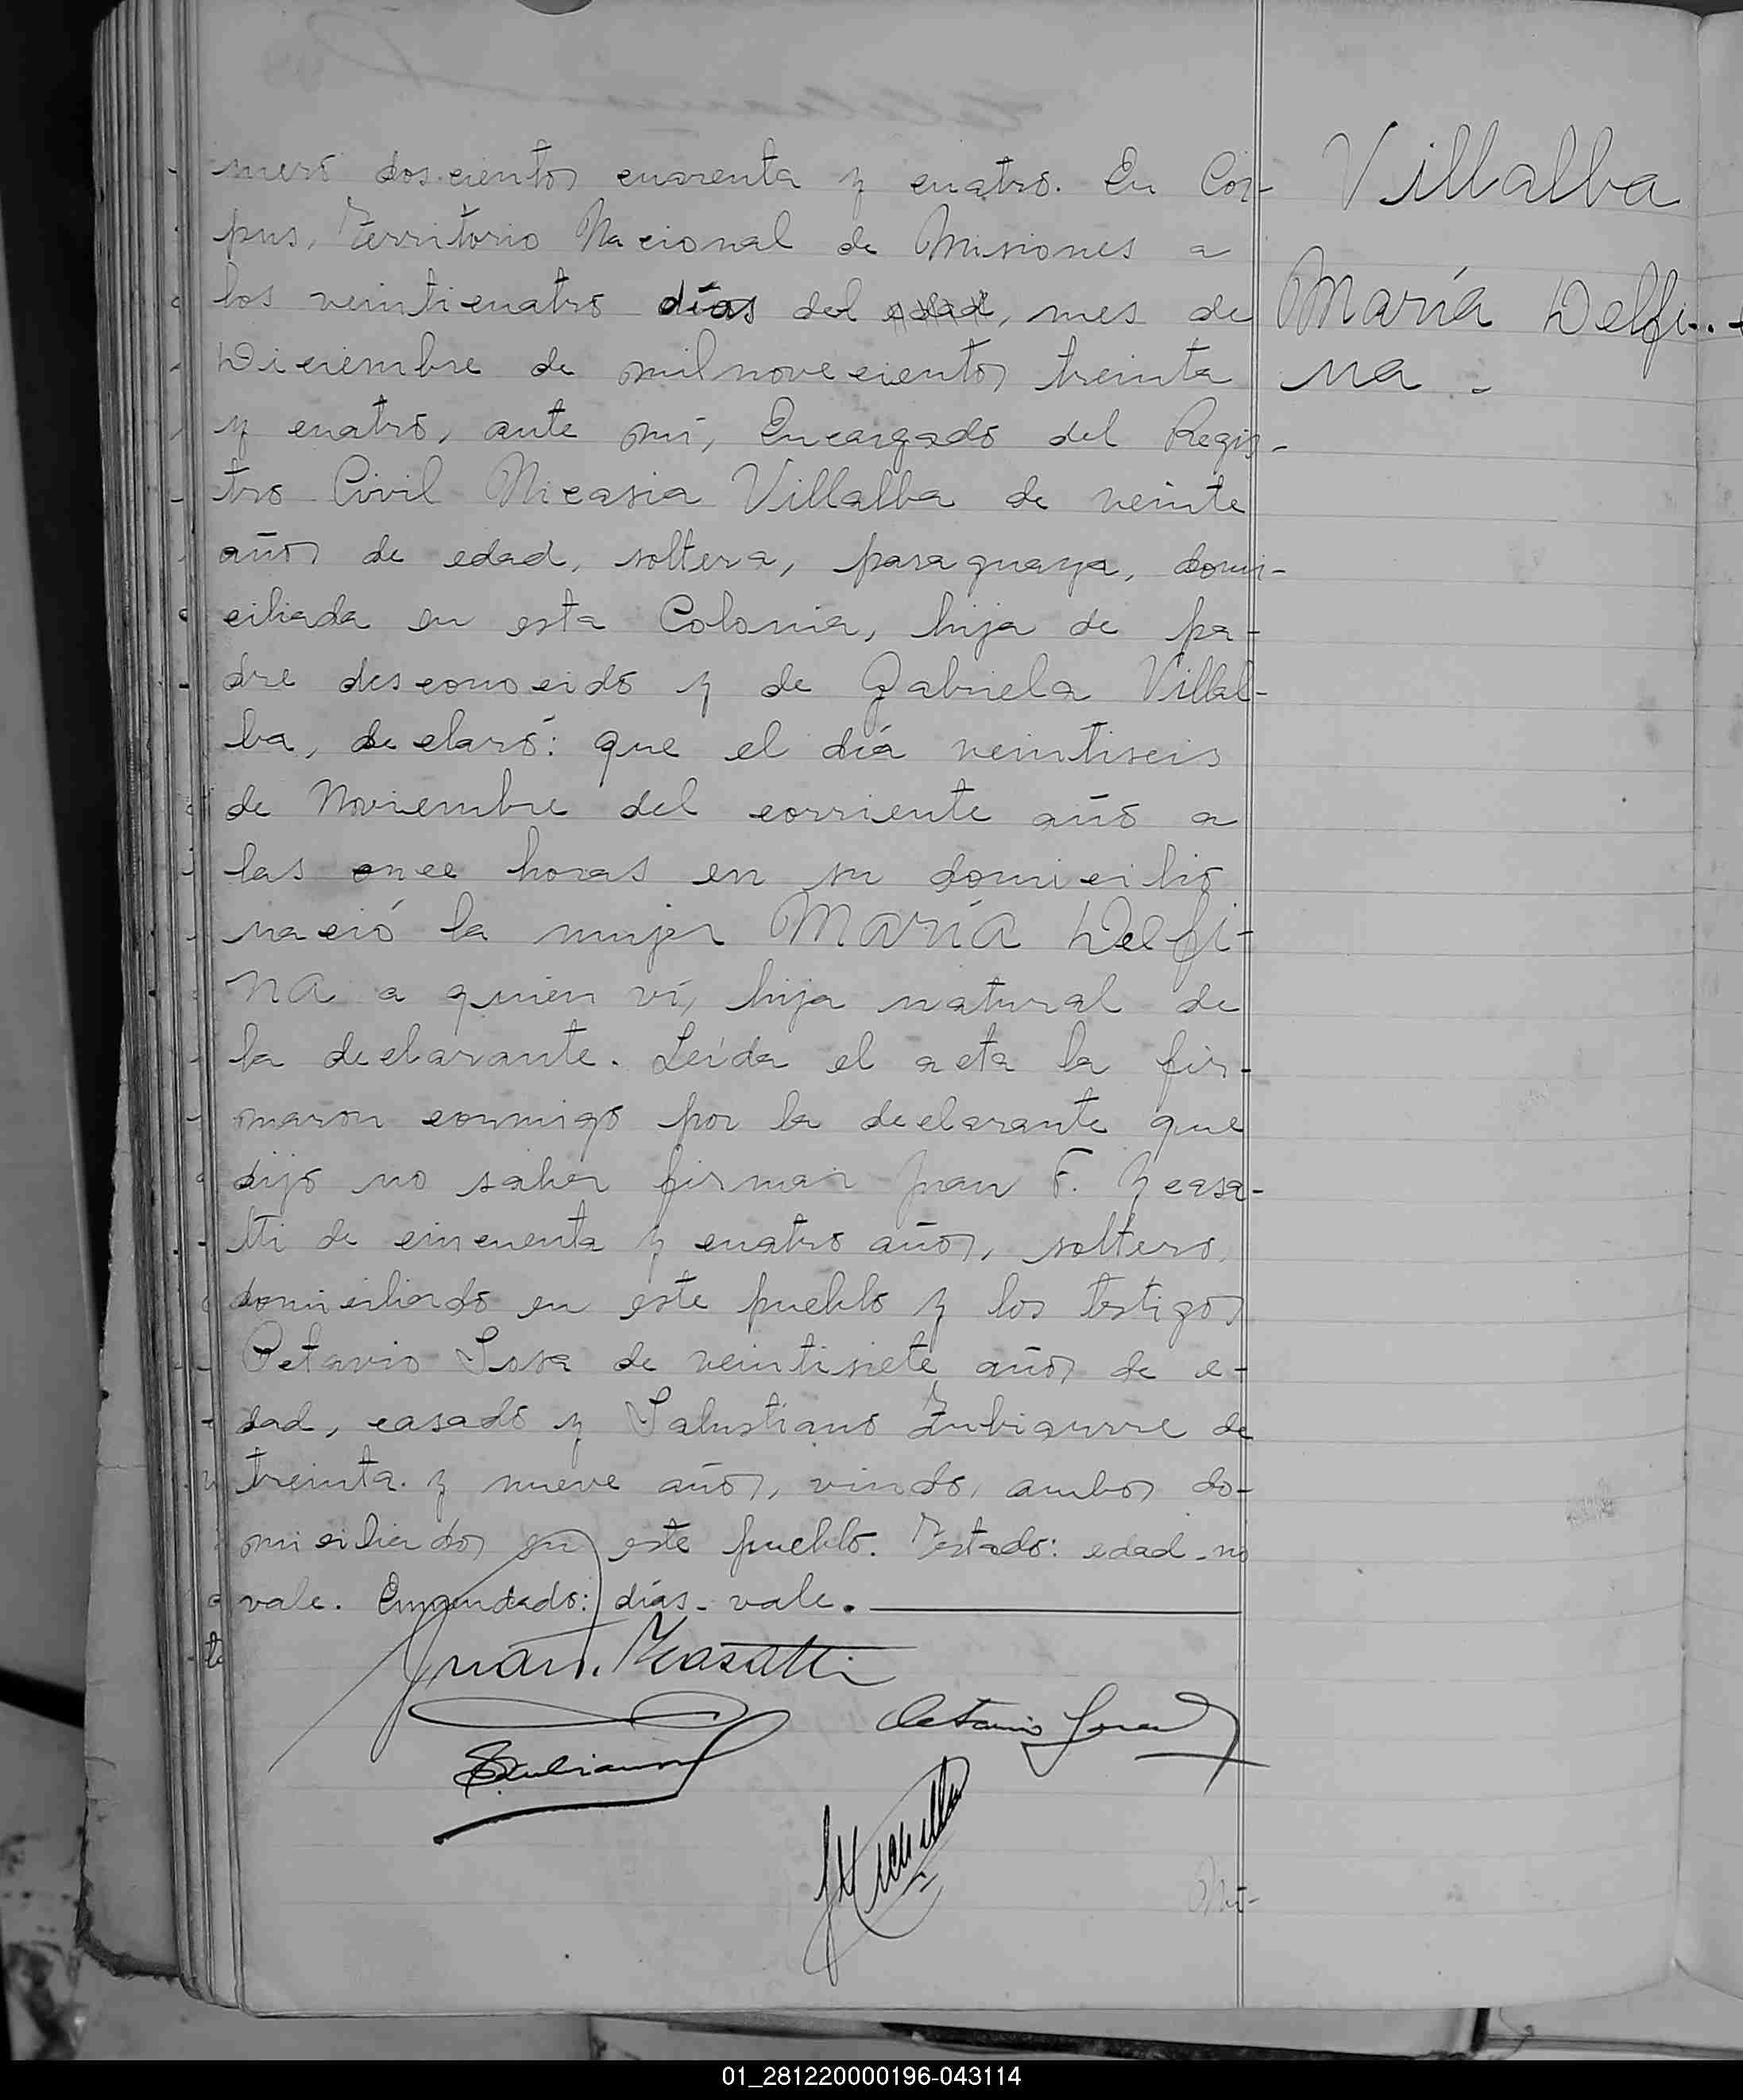 mero doscientos cuarenta y cuatro. En Cor-
pus, Territorio Nacional de Misiones a
los veinticuatro días del edad, mes de
Diciembre de mil novecientos treinta
y cuatro, ante mí, Encargado del Regis-
tro Civil Nicasia Villalba de veinte
años de edad, soltera, paraguaya, domi-
ciliada en esta Colonia, hija de pa-
dre desconocido y de Gabriela Villal-
ba, declaró: que el día veintiseis
de Noviembre del corriente año a
las once horas en su domicilio
nació la mujer María Delfi-
na a quien ví, hija natural de
la declarante. Leída el acta la fir-
maron conmigo por la declarante que
dijo no saber firmar Juan F. Ycasa-
tti de cincuenta y cuatro años, soltero,
domiciliado en este pueblo y los testigos
Octavio Sosa de veintisiete años de e-
dad, casado y Salustiano Zubiaurre de
treinta y nueve años, viudo, ambos do-
miciliados en este pueblo. Testado: edad-no
vale. Enmendado: días-vale.
Villalba
María Delfi..
na -
Juan F. Ycasatti
Octavio Sosa
SZubiaurre
Nú-
01_281220000196-043114